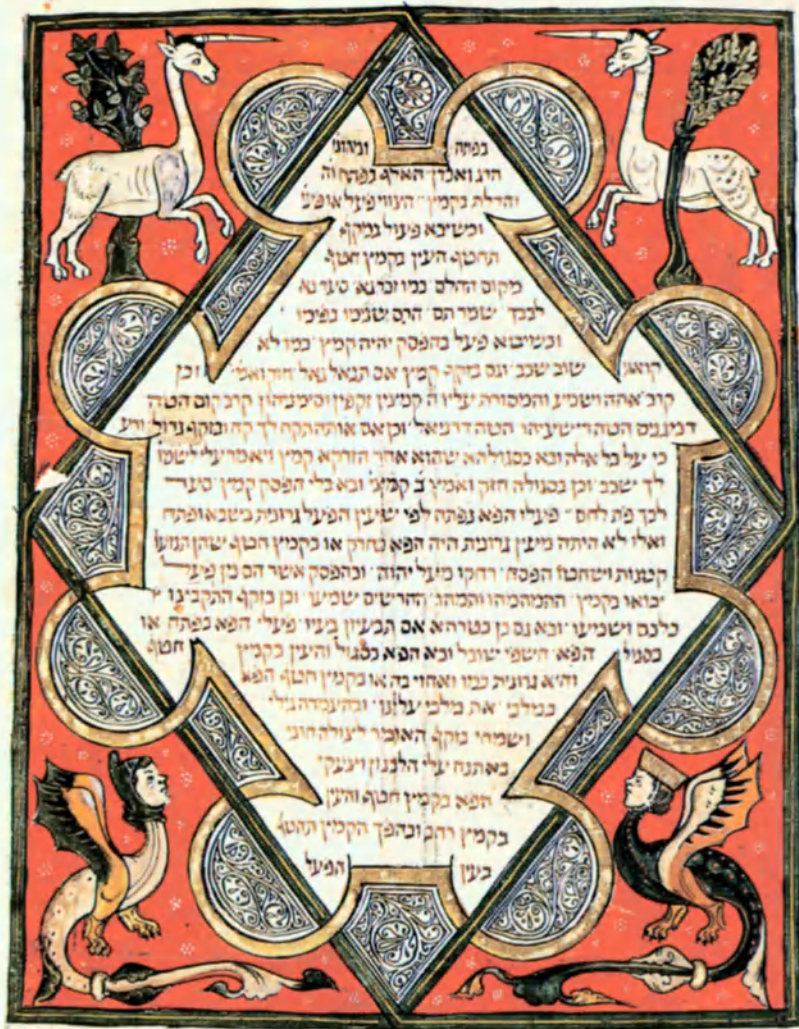 בפתח ומהוני
היו ואבדן האלף בפתח וה
והדלת בקמץ הצווי פיעל או פיע
וכשיבא פיעול במקף
תחטף העין בקמץ חטף
מקום החלם כמו זכר נא סעד נא
לבך שמר תם הרס שנימו בפימו
וכשיבוא פיעל בהפסק יהיה קמץ כמו לא
שוב שכב וגם בזקף קמץ אם תגאל גאל חזק ואמץ וכן
קרב אתה ושמע והמסורת עליו ה קמצין זקפין וסימניהון קרב קום הטה
וכן אם אותה תקח לך קח ובזקף גדול ורע
כי על כל אלה ובא בסגולה שהוא אחר הזרקא קמץ ויאמר עלי לשמו
לך שכב וכן בסגולה חזק ואמץ ב קמצי ובא בלי הפסק קמץ סעד
לבך פת לחם פיעלו הפא נפתה לפי שעין הפעל גרונית בשבא ופתח
ואלו לא היתה מיעין גרונית היה הפא בחרק או בקמץ חטף שהן תנועו
קטנות ושחטו הפסח רחקו מעל יהוה ובהפסק אשר הם מן פיעל
יבואו בקמץ התמהמהו ותמהו החרשים שמעו וכן בזקף התקבצו
כלכם ושמעו ובא גם כן בטרחא אם תבעיון בעיו פיעלי הפא בפתח או
בסגול הפא חשפי שובל ובא הפא בסגול והעין בקמץ חטף
והיא גרונית כמו ואחזי בה או בקמץ חטף הפא
במלכי את מלכי עלינו ובהעמדה גילי
ושמחי בזקף האומר לצולה חרבי
באתנח עלי הלבנון וצעקי
הפא בקמץ חטף והעין
בקמץ רחב ובהפך הקמץ החטף
בעין הפעל